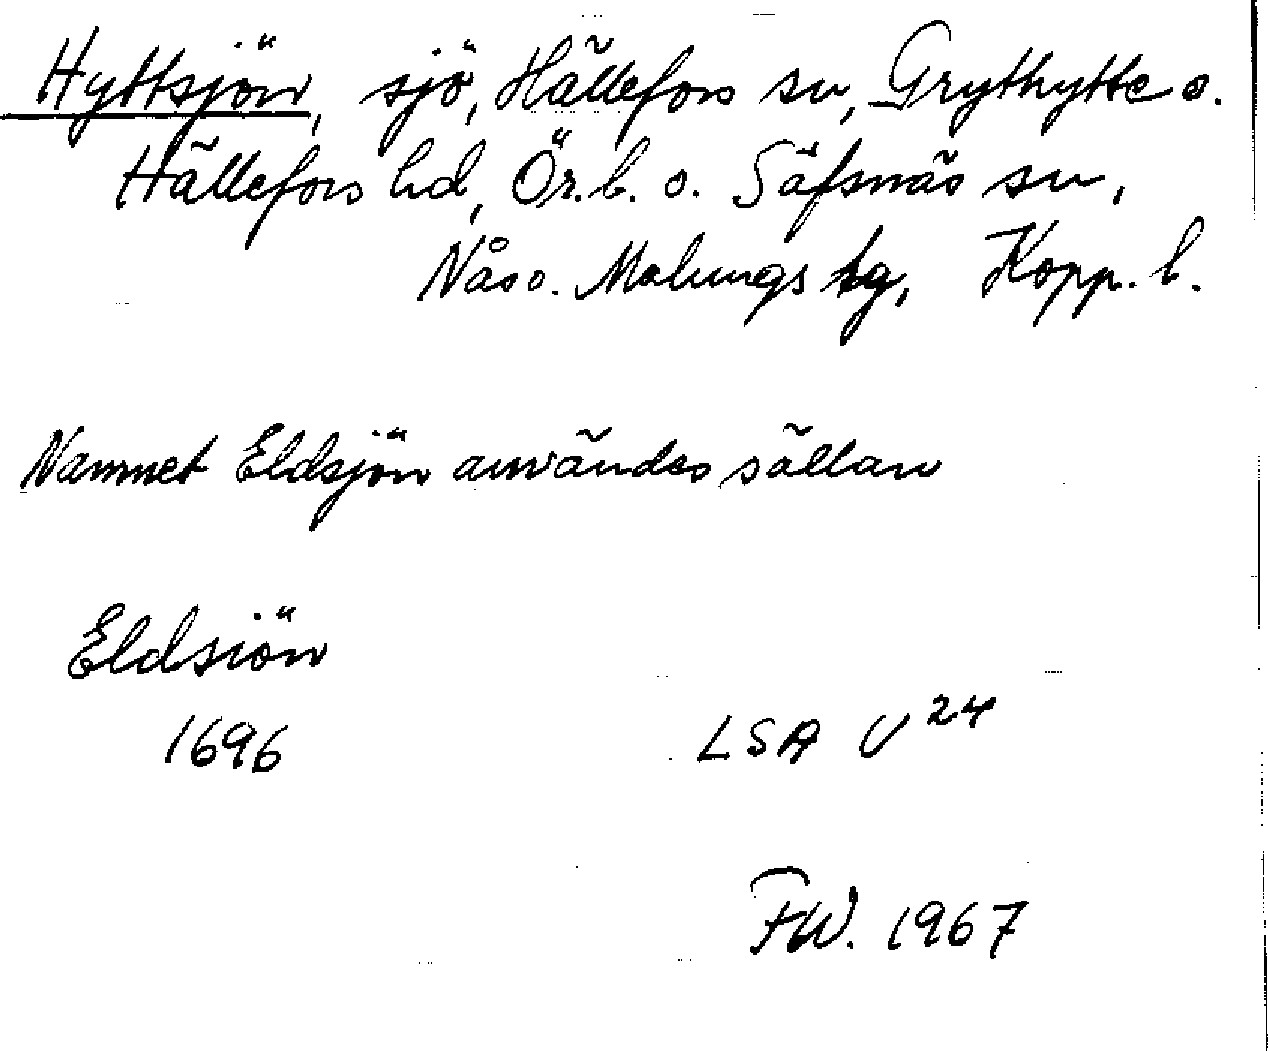 Hyttsjön, sjö, Hällefors sn, Grythytte o.
Hällefors hd, Ör. l. o. Säfsnäs sn,
Nås o. Malungs tg, Kopp. l.
Namnet Eldsjön användes sällan
Eldsiön
1696
LSA U 24
FW. 1967